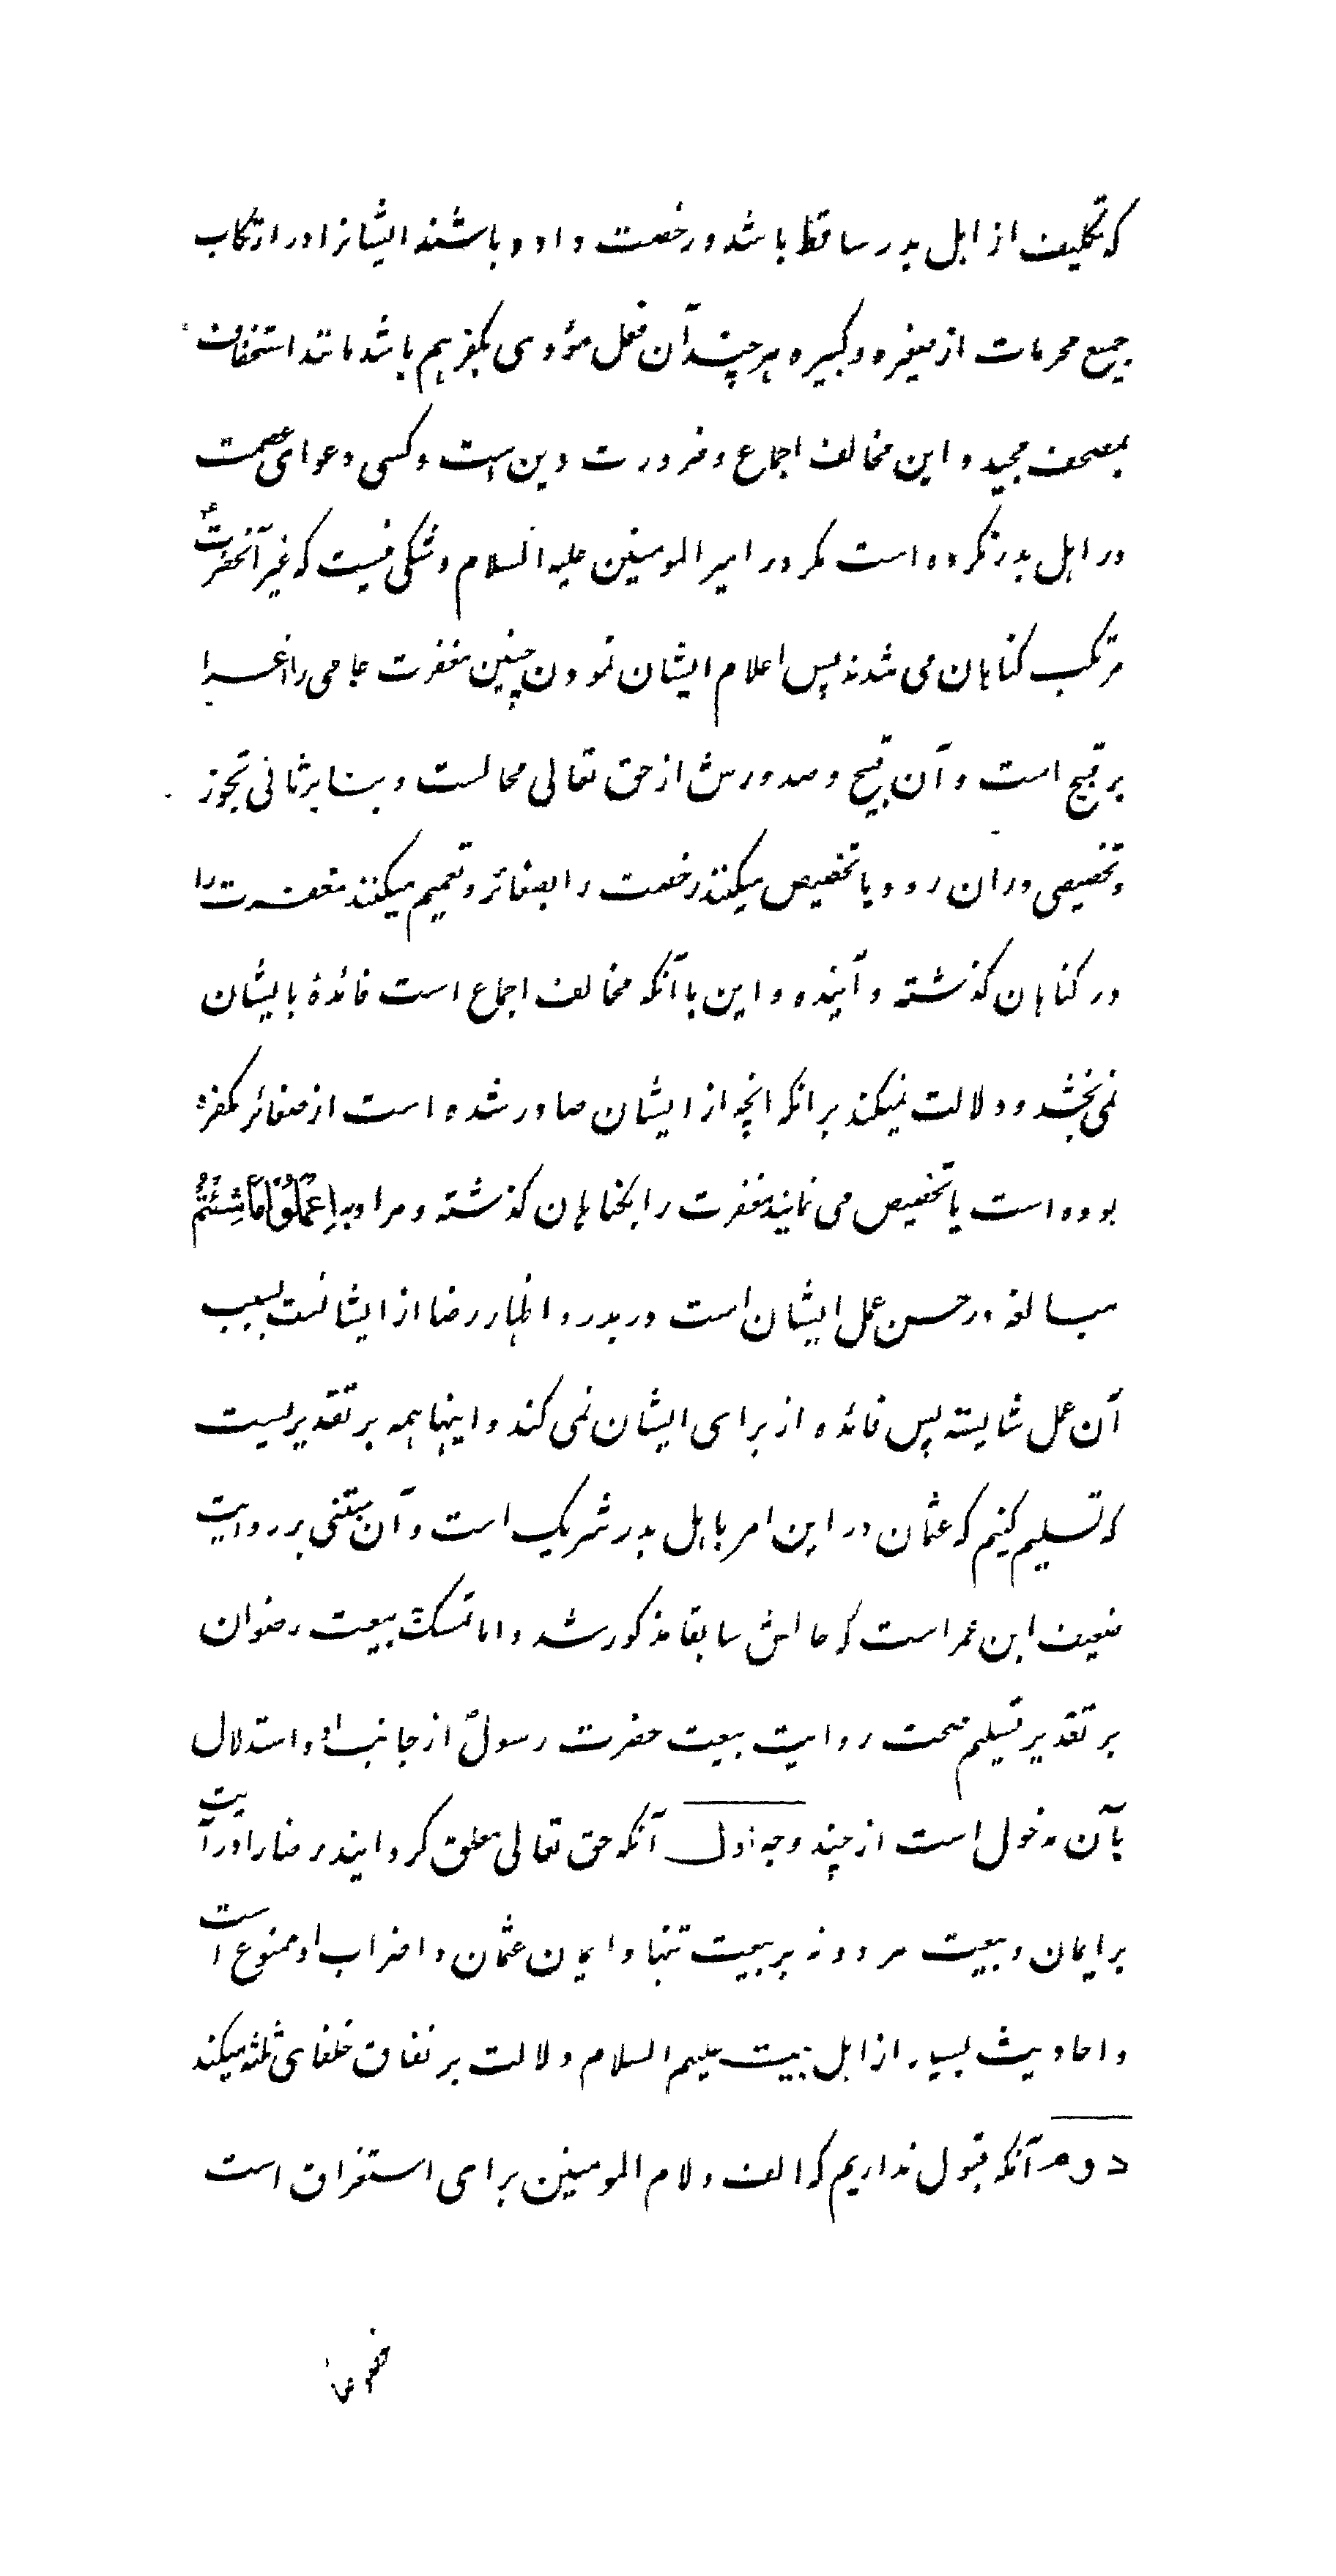 که تکلیف از اهل بدر ساقط باشد و رخصت داده باشند ایشانرا در ارتکاب
جمیع محرمات از صغیره و کبیره هرچند آن فعل مؤدی بکفر هم باشد مانند استخفاف
بمصحف مجید و این مخالف اجماع و ضرورت دین است و کسی دعوای عصمت
در اهل بدر نکرده است مکر در امیر المومنین علیه السلام و شکی نیست که غیر آنحضرت
مرتکب کناهان می شدند پس اعلام ایشان نمودن چنین مغفرت عامی را اغرا
بر قبیح است و آن قبیح و صدورش از حق تعالی محالست و بنا بر ثانی تجوز
و تخصیصی دران رود و یا تخصیص میکنند رخصت را بصغائر و تعمیم میکنند مغفرت را
در کناهان کذشته و آینده و این با آنکه مخالف اجماع است فائدۀ بایشان
نمی بخشد و دلالت نمیکند برانکه انچه از ایشان صادر شده است از صغائر مکفره
بوده است یا تخصیص می نمایند مغفرت را بکناهان کذشته و مراد به اِعْمَلُوْا مَاشِئْتُمْ
مبالغه در حسن عمل ایشان است در بدر و اظهار رضا از ایشانست بسبب
آن عمل شایسته پس فائده از برای ایشان نمی کند و اینها همه بر تقدیریست
که تسلیم کنیم که عثمان در این امر با اهل بدر شریک است و آن مبتنی بر روایت
ضعیف ابن عمر است که حالش سابقا مذکور شد و اما تمسک به بیعت رضوان
بر تقدیر تسلیم صحت روایت بیعت حضرت رسول از جانب او و استدلال
بآن مدخول است از چند وجه اول آنکه حق تعالی معلق کردانیده رضا را در آیت
بر ایمان و بیعت هر دو نه بر بیعت تنها و ایمان عثمان و اضراب او ممنوع است
و احادیث بسیار از اهل بیت علیهم السلام دلالت بر نفاق خلفای ثلثه میکند
دوم آنکه قبول نداریم که الف و لام المومنین برای استغراق است